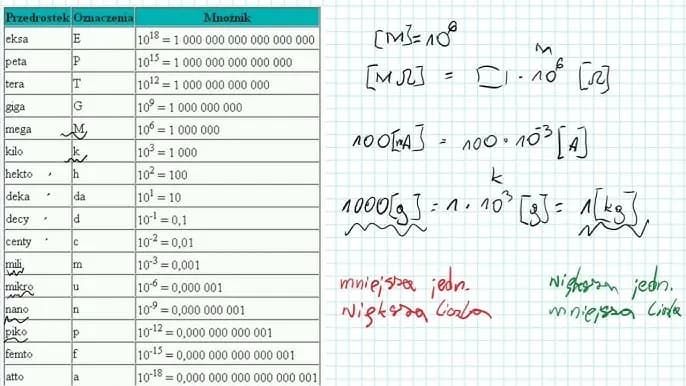 Przedrostek Oznaczenia Mnożnik
eksa E 10^18 = 1 000 000 000 000 000 000
peta P 10^15 = 1 000 000 000 000 000
tera T 10^12 = 1 000 000 000 000
giga G 10^9 = 1 000 000 000
mega M 10^6 = 1 000 000
kilo k 10^3 = 1 000
hekto h 10^2 = 100
deka da 10^1 = 10
decy d 10^-1 = 0,1
centy c 10^-2 = 0,01
mili m 10^-3 = 0,001
mikro u 10^-6 = 0,000 001
nano n 10^-9 = 0,000 000 001
piko p 10^-12 = 0,000 000 000 001
femto f 10^-15 = 0,000 000 000 000 001
atto a 10^-18 = 0,000 000 000 000 000 001
[M]=10^6
M
[MΩ] = □ · 10^6 [Ω]
100[mA] = 100 · 10^-3 [A]
k
1000[g] = 1 · 10^3 [g] = 1[kg]
mniejsza jedn.
większa liczba
większa jedn.
mniejsza liczba